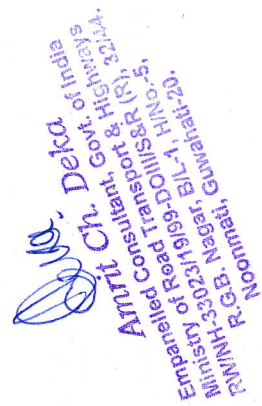 Amrit Ch. Deka
Empanelled Consultant, Govt. of India
Ministry of Road Transport & Highways
RW/NH-33023/19/99-DOIII/S&R (R), 32/44.
R.G.B. Nagar, B/L-1, H/No-5,
Noonmati, Guwahati-20.